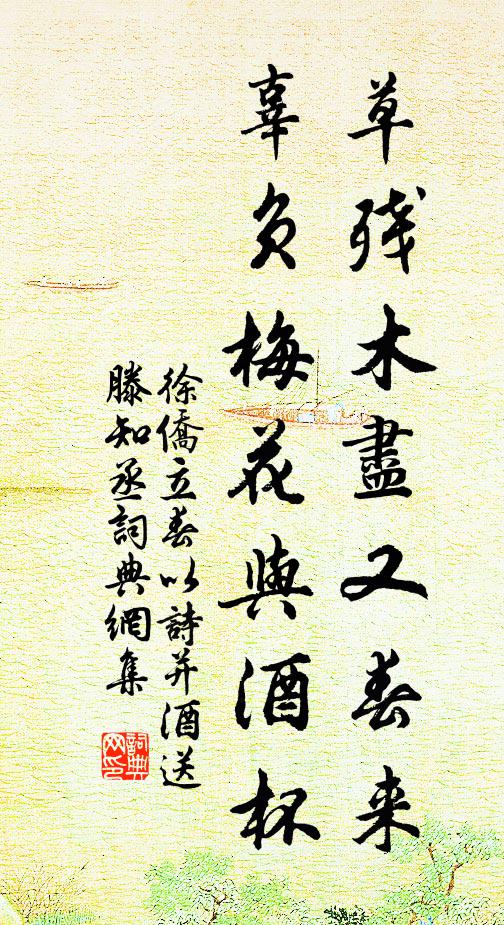 草残木盡又春来
辜负梅花與酒杯
徐僑立春以詩并酒送
滕知丞詞典網集
詞典网印